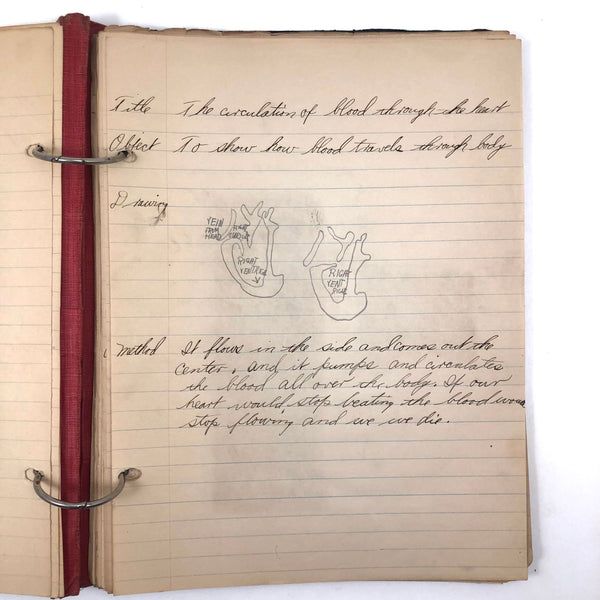 Title The circulation of blood through the heart
Object To show how blood travels through body
Drawing
VEIN
FROM
HEAD
RIGHT
RIGHT
VENTRICAL
RIGHT
VENT
RICAL
Method It flows in the side and comes out the
center, and it pumps and circulates
the blood all over the body. If our
heart would stop beating the blood would
stop flowing and we we die.